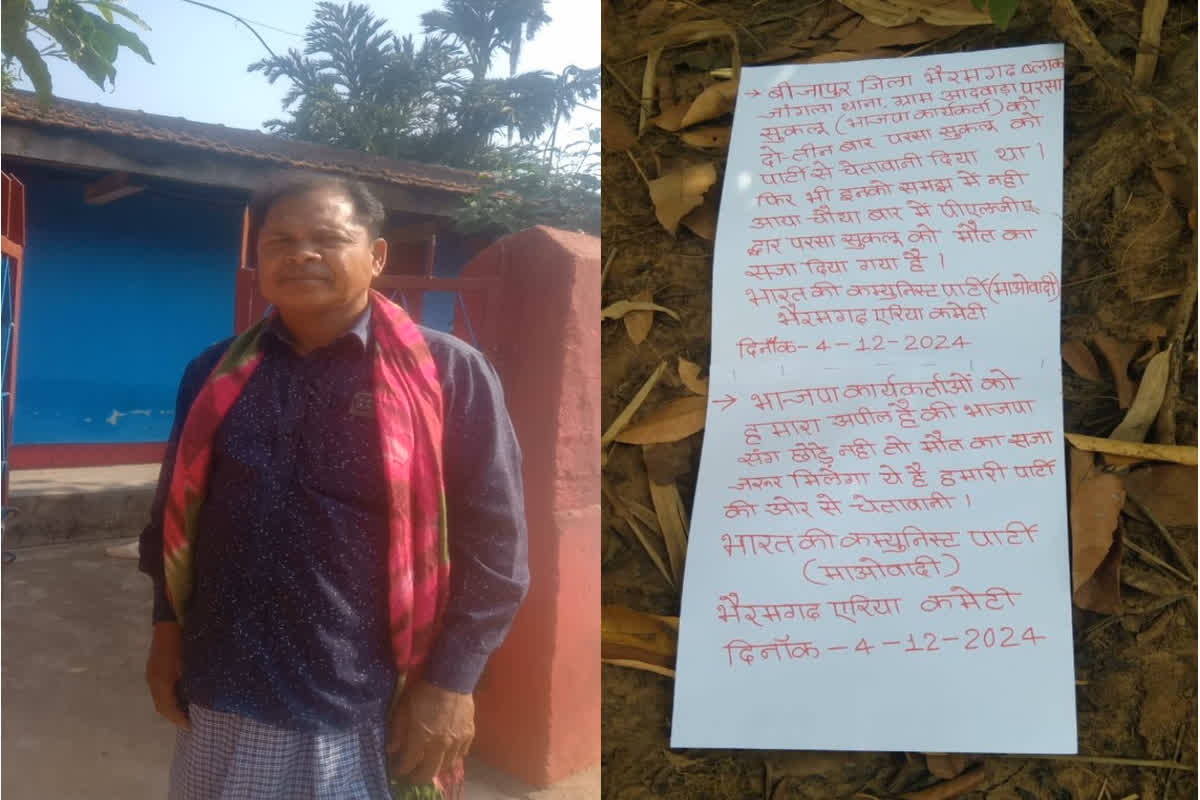 → बीजापुर जिला भैरमगढ ब्लाक
जांगला थाना. ग्राम आदवाडा परसा
सुकलू (भाजपा कार्यकर्ता) को
दो-तीन बार परसा सुकलू को
पार्टी से चेतावानी दिया था।
फिर भी इनको समझ में नही
आया चौथा बार में पीएलजीए
द्वार परसा सुकलू को मौत का
सजा दिया गया है।
भारत की कम्युनिस्ट पार्टी(माओवादी)
भैरमगढ एरिया कमेटी
दिनाँक-4-12-2024
→ भाजपा कार्यकर्ताओं को
हमारा अपील है की भाजपा
संग छोडे नही तो मौत का सजा
जरूर मिलेगा ये है हमारी पार्टी
की ओर से चेतावानी।
भारत की कम्युनिस्ट पार्टी
(माओवादी)
भैरमगढ एरिया कमेटी
दिनाँक-4-12-2024